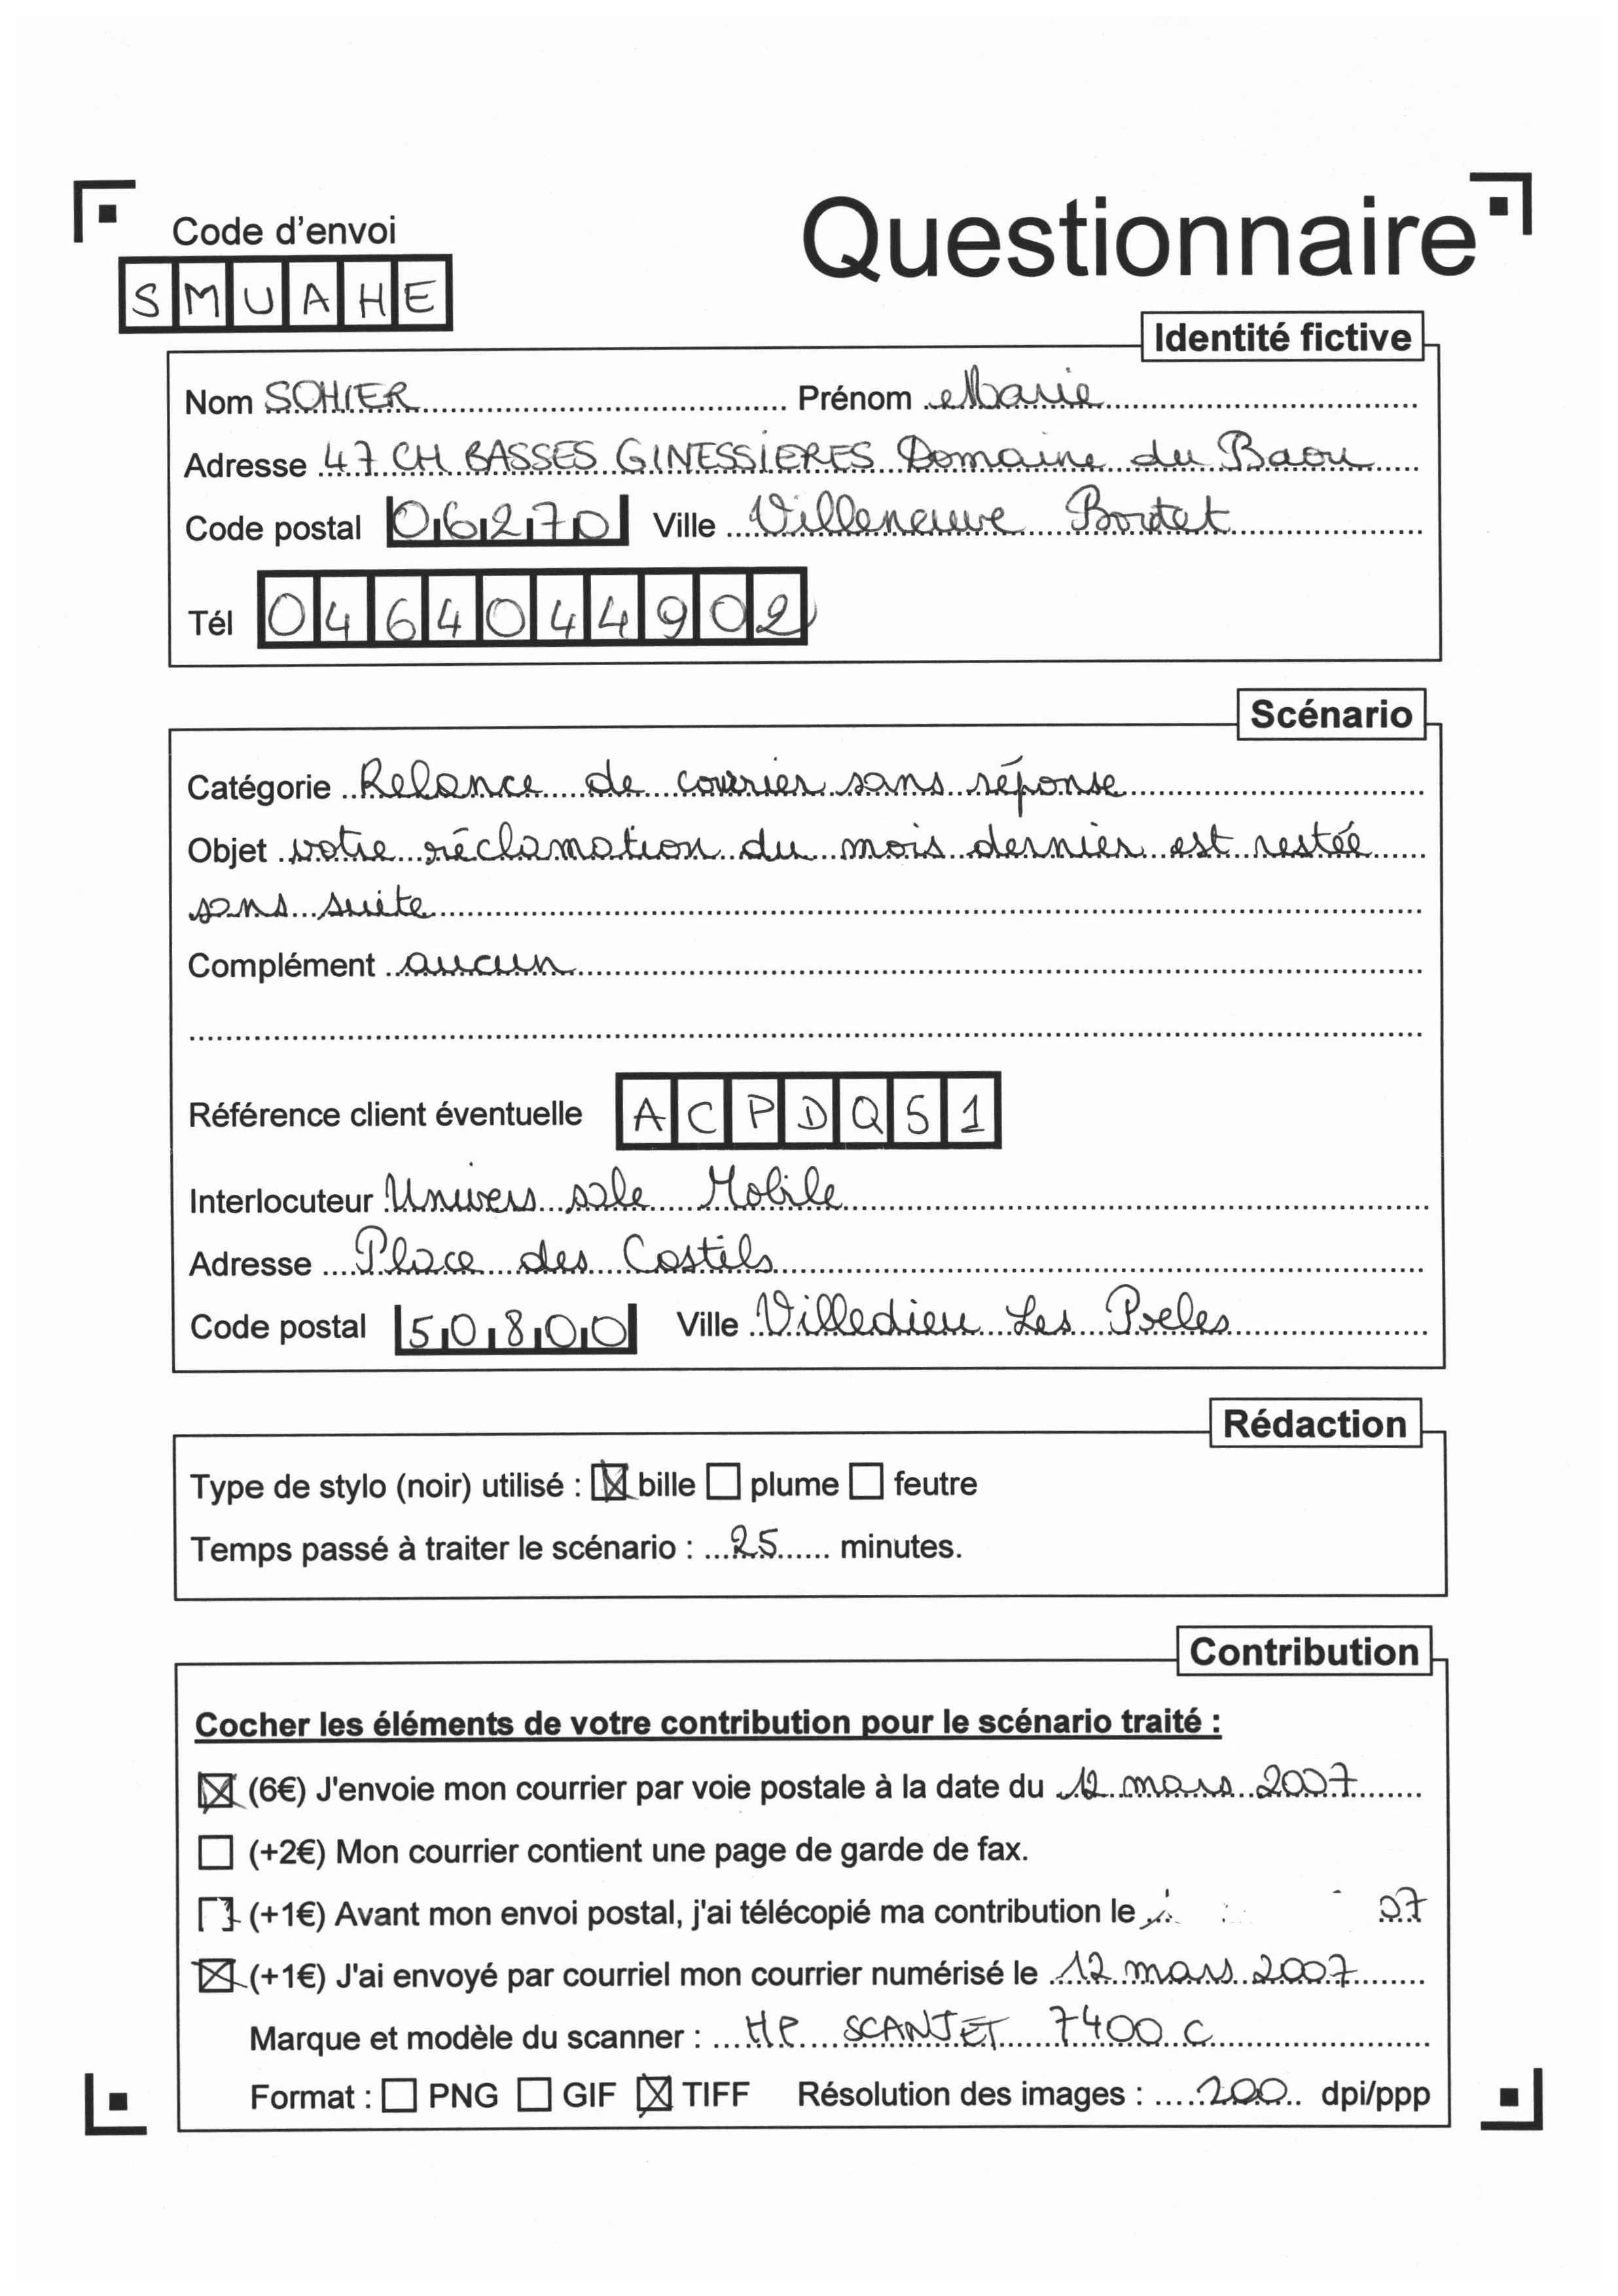 Code d'envoi
Questionnaire
SMUAHE
Identité fictive
Nom SOHIER Prénom Marie
Adresse 47 CH BASSES GINESSIERES Domaine du Baou
Code postal 06270 Ville Villeneuve
Tél 0464044902
Scénario
Catégorie Relance de courrier sans réponse
Objet votre réclamation du mois dernier est restée
sans suite
Complément aucun
Référence client éventuelle ACPDQ51
Interlocuteur Univers sale Mobile
Adresse Place des Costils
Code postal 50800 Ville Villedieu Les Poeles
Rédaction
Type de stylo (noir) utilisé : bille plume feutre
Temps passé à traiter le scénario : 25 minutes.
Contribution
Cocher les éléments de votre contribution pour le scénario traité :
(6€) J'envoie mon courrier par voie postale à la date du 12 mars 2007
(+2€) Mon courrier contient une page de garde de fax.
(+1€) Avant mon envoi postal, j'ai télécopié ma contribution le 07
(+1€) J'ai envoyé par courriel mon courrier numérisé le 12 mars 2007
Marque et modèle du scanner : HP SCANJET 7400 C
Format : PNG GIF TIFF Résolution des images : 200 dpi/ppp